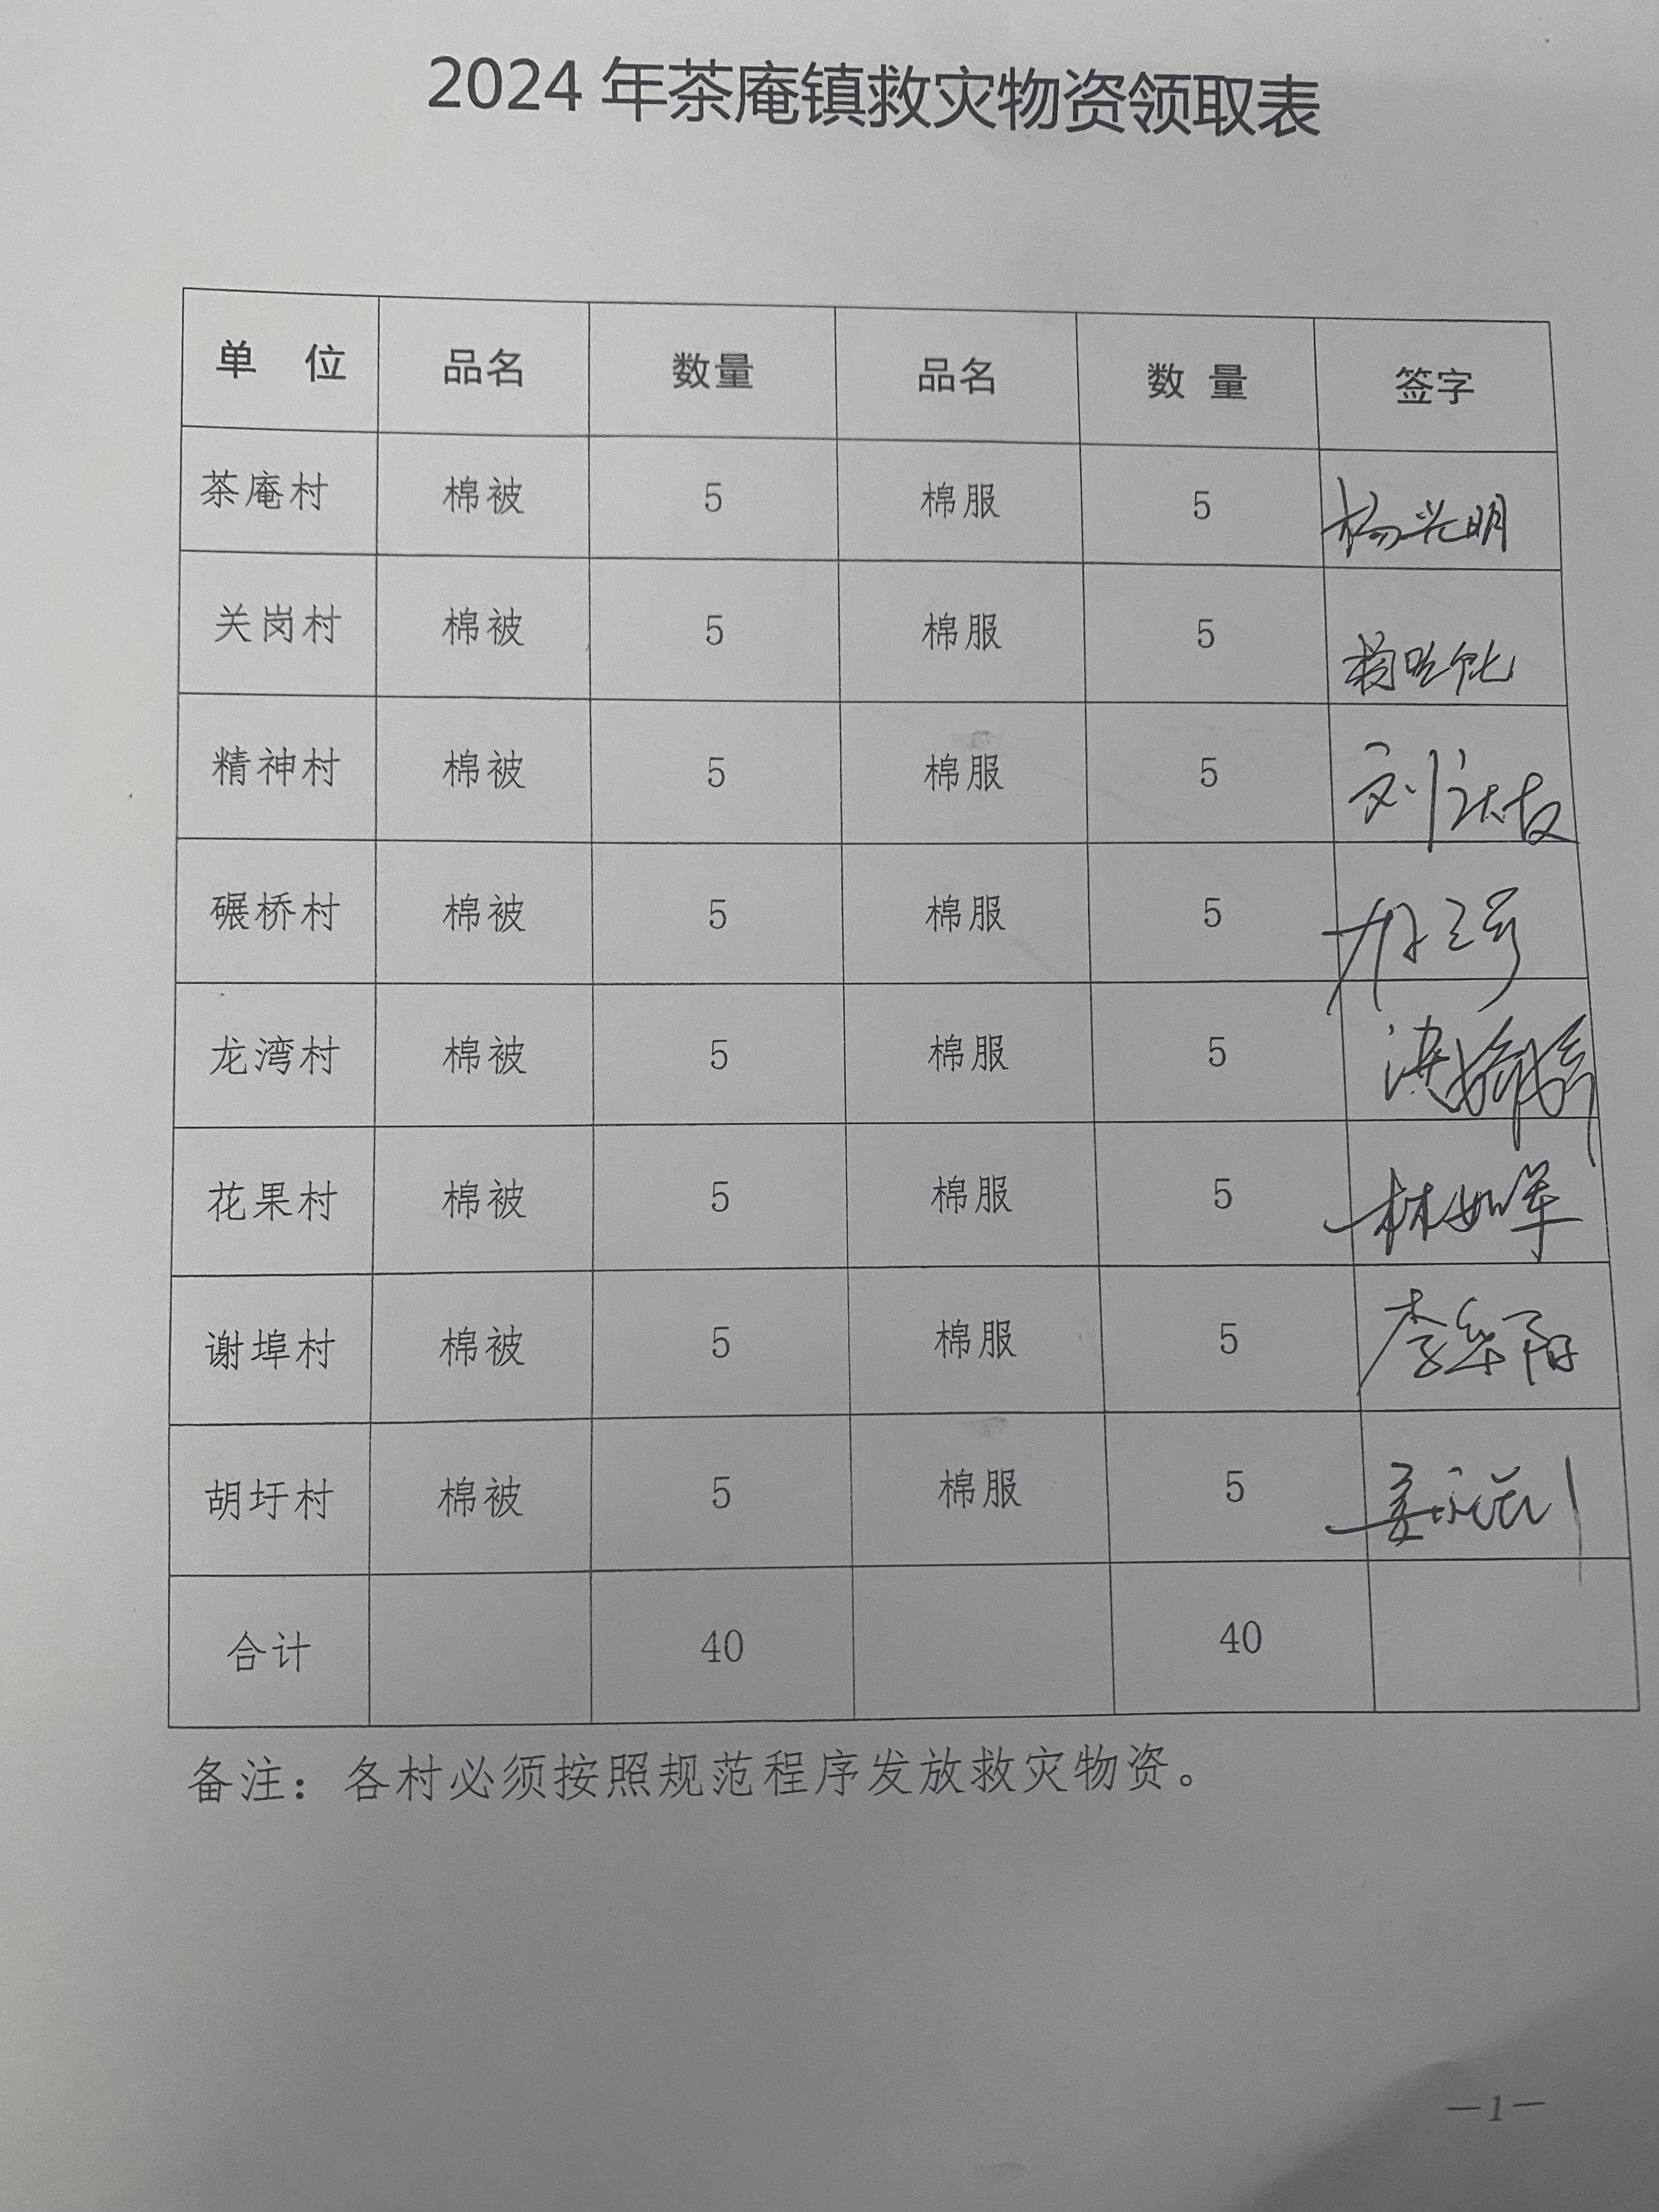 2024年茶庵镇救灾物资领取表
单 位 品名 数量 品名 数 量 签字
茶庵村 棉被 5 棉服 5 杨兴明
关岗村 棉被 5 棉服 5
精神村 棉被 5 棉服 5 刘
碾桥村 棉被 5 棉服 5
龙湾村 棉被 5 棉服 5
花果村 棉被 5 棉服 5 林如军
谢埠村 棉被 5 棉服 5 李华阳
胡圩村 棉被 5 棉服 5 姜
合计 40 40
备注：各村必须按照规范程序发放救灾物资。
—1—